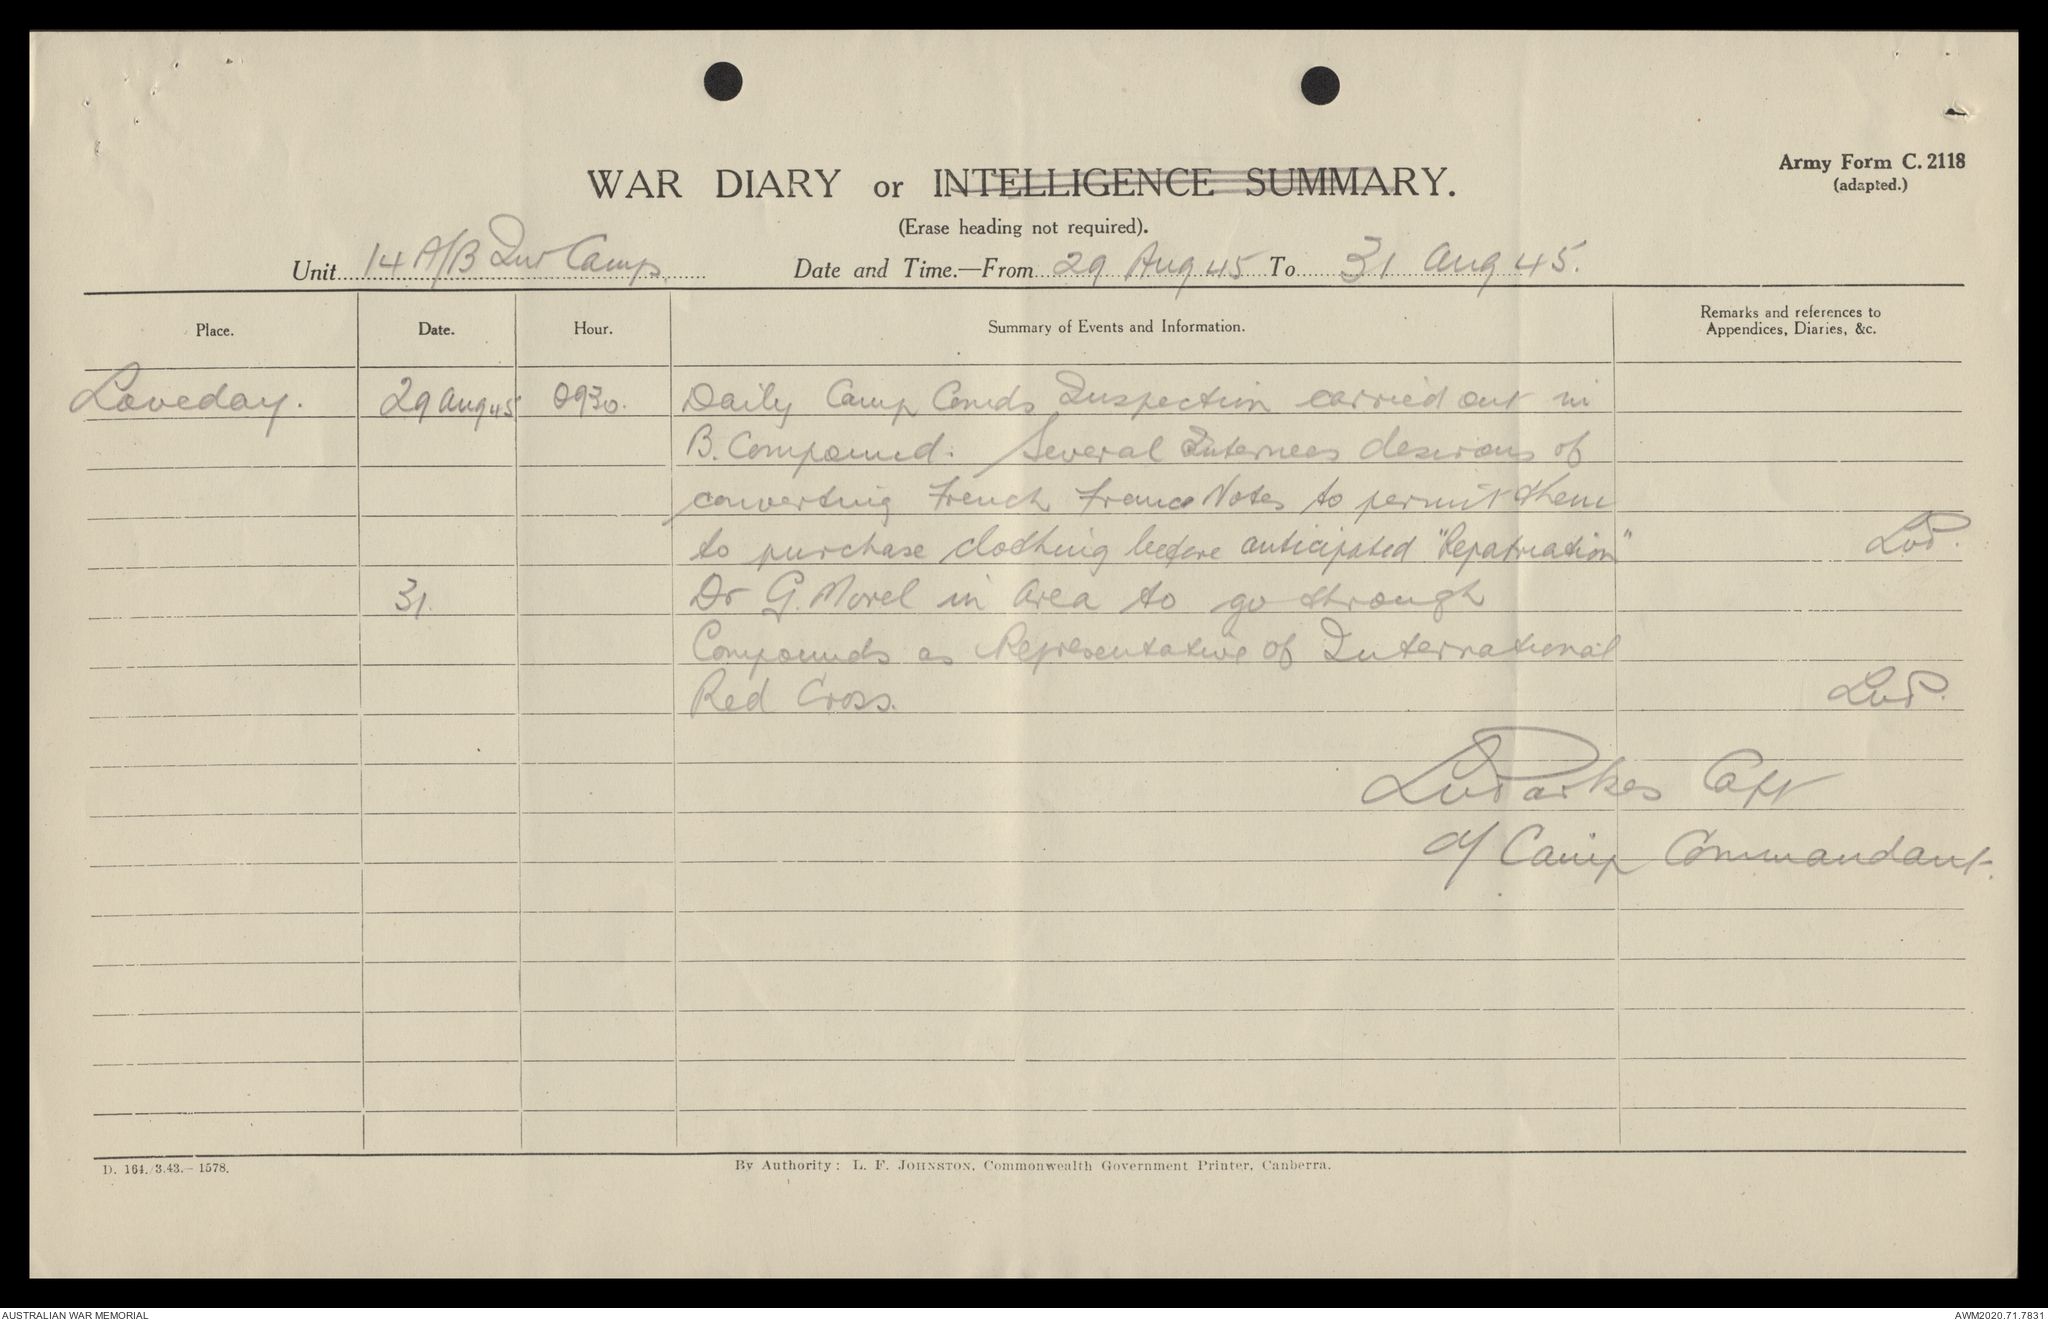 Army Form C. 2118
(adapted.)
WAR DIARY or INTELLIGENCE SUMMARY.
(Erase heading not required).
Unit 14 A/B Int Camp. Date and Time.—From 29 Aug 45 To 31 Aug 45.
Place. Date. Hour. Summary of Events and Information. Remarks and references to Appendices, Diaries, &c.
Loveday. 29 Aug 45 0930. Daily Camp Comds Inspection carried out in
B. Compound. Several Internees desirous of
converting French Franc Notes to permit them
to purchase clothing before anticipated "Repatriation" LWP.
31. Dr G. Morel in area to go through
Compounds as Representative of International
Red Cross. LWP.
LWParkes Capt
A/ Camp Commandant.
D. 164./3.43.—1578. By Authority: L. F. JOHNSTON, Commonwealth Government Printer, Canberra.
AUSTRALIAN WAR MEMORIAL AWM2020.71.7831